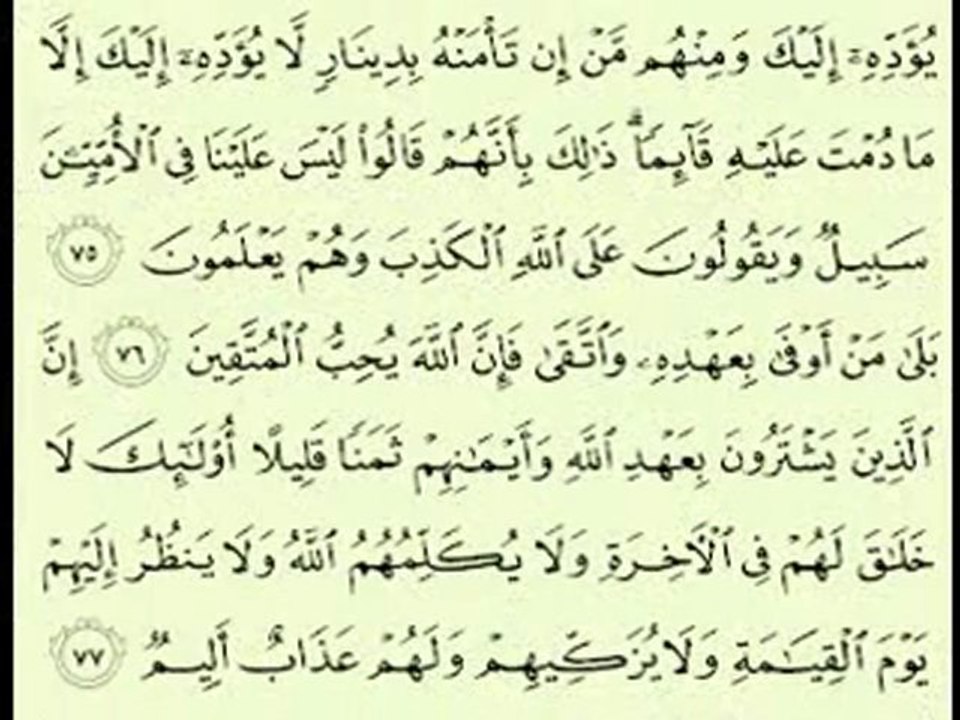 يُؤَدِّهِۦٓ إِلَيْكَ وَمِنْهُم مَّنْ إِن تَأْمَنْهُ بِدِينَارٍ لَّا يُؤَدِّهِۦٓ إِلَيْكَ إِلَّا
مَا دُمْتَ عَلَيْهِ قَآئِمًاۗ ذَٰلِكَ بِأَنَّهُمْ قَالُوا۟ لَيْسَ عَلَيْنَا فِى ٱلْأُمِّيِّـۧنَ
سَبِيلٌ وَيَقُولُونَ عَلَى ٱللَّهِ ٱلْكَذِبَ وَهُمْ يَعْلَمُونَ ٧٥
بَلَىٰ مَنْ أَوْفَىٰ بِعَهْدِهِۦ وَٱتَّقَىٰ فَإِنَّ ٱللَّهَ يُحِبُّ ٱلْمُتَّقِينَ ٧٦ إِنَّ
ٱلَّذِينَ يَشْتَرُونَ بِعَهْدِ ٱللَّهِ وَأَيْمَـٰنِهِمْ ثَمَنًا قَلِيلًا أُو۟لَـٰٓئِكَ لَا
خَلَـٰقَ لَهُمْ فِى ٱلْـَٔاخِرَةِ وَلَا يُكَلِّمُهُمُ ٱللَّهُ وَلَا يَنظُرُ إِلَيْهِمْ
يَوْمَ ٱلْقِيَـٰمَةِ وَلَا يُزَكِّيهِمْ وَلَهُمْ عَذَابٌ أَلِيمٌ ٧٧